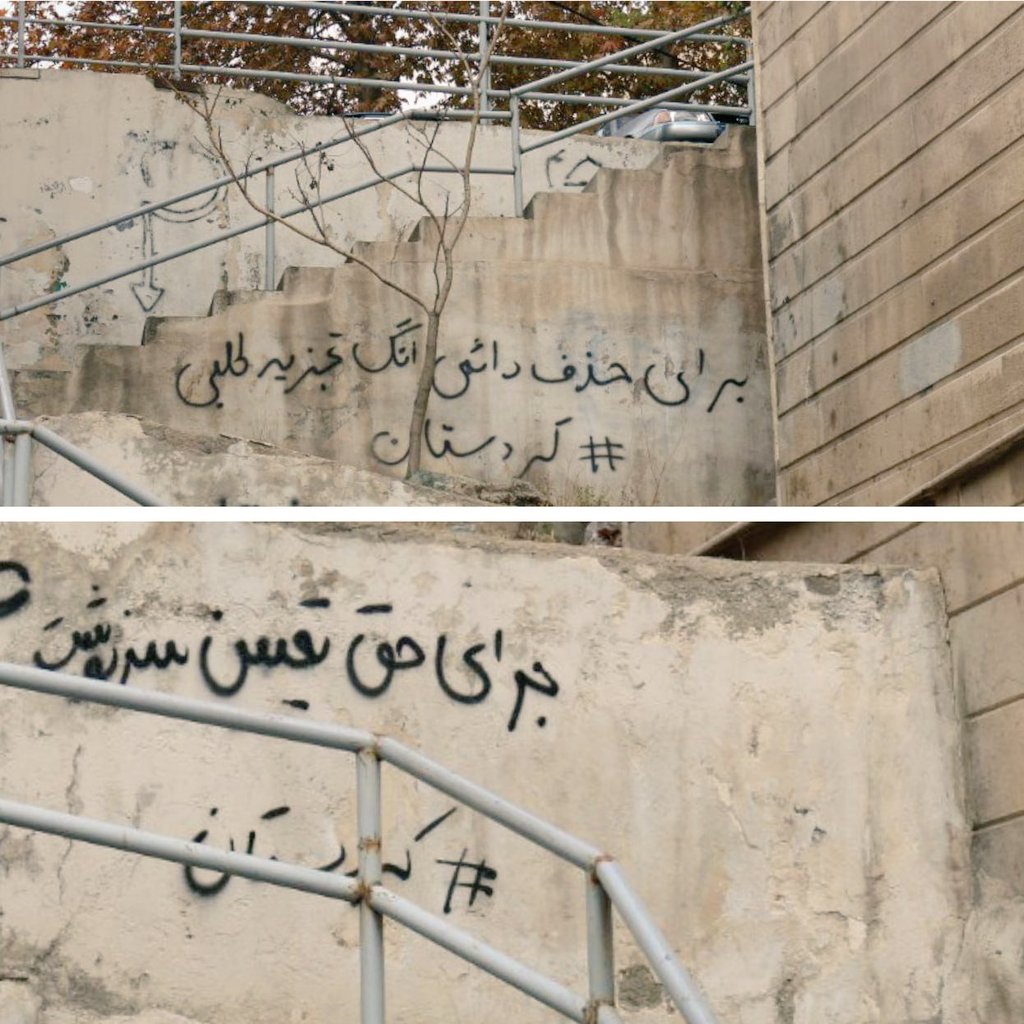 برای حذف دائمی انگ تجزیه طلبی
# کردستان
برای حق تعیین سرنوشت
# کردستان